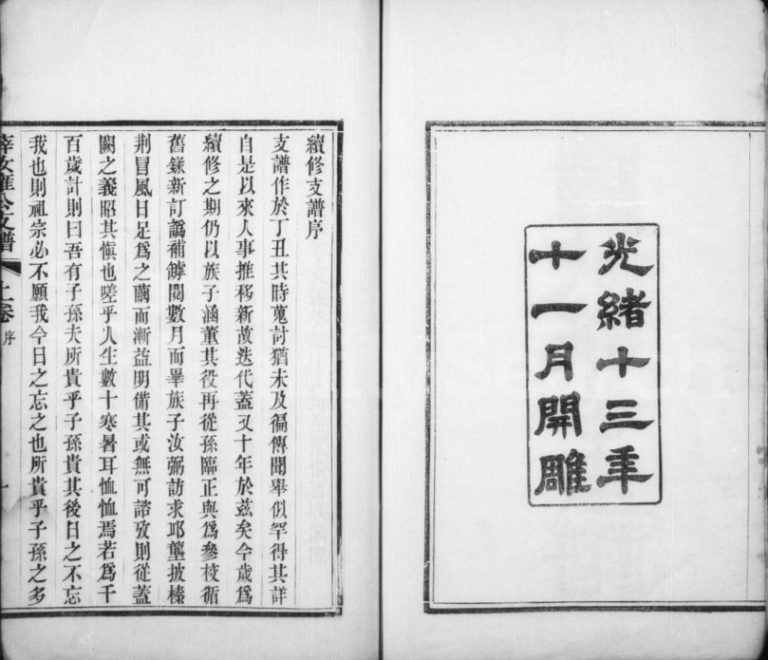 光緒十三年
十一月開雕
續修支譜序
支譜作於丁丑其時蒐討猶未及徧傳聞舉似罕得其詳
自是以來人事推移新故迭代蓋又十年於茲矣今歲爲
續修之期仍以族子涵董其役再從孫臨正與爲參校循
舊鎵新訂譌補罅閱數月而畢族子汝弼訪求邱壟披榛
荆冒風日足爲之繭而漸益明備其或無可諮攷則從蓋
闕之義昭其愼也嗟乎人生數十寒暑耳恤恤焉若爲千
百歲計則曰吾有子孫夫所貴乎子孫貴其後日之不忘
我也則祖宗必不願我今日之忘之也所貴乎子孫之多
薛汝雍公支譜 上卷 序 一